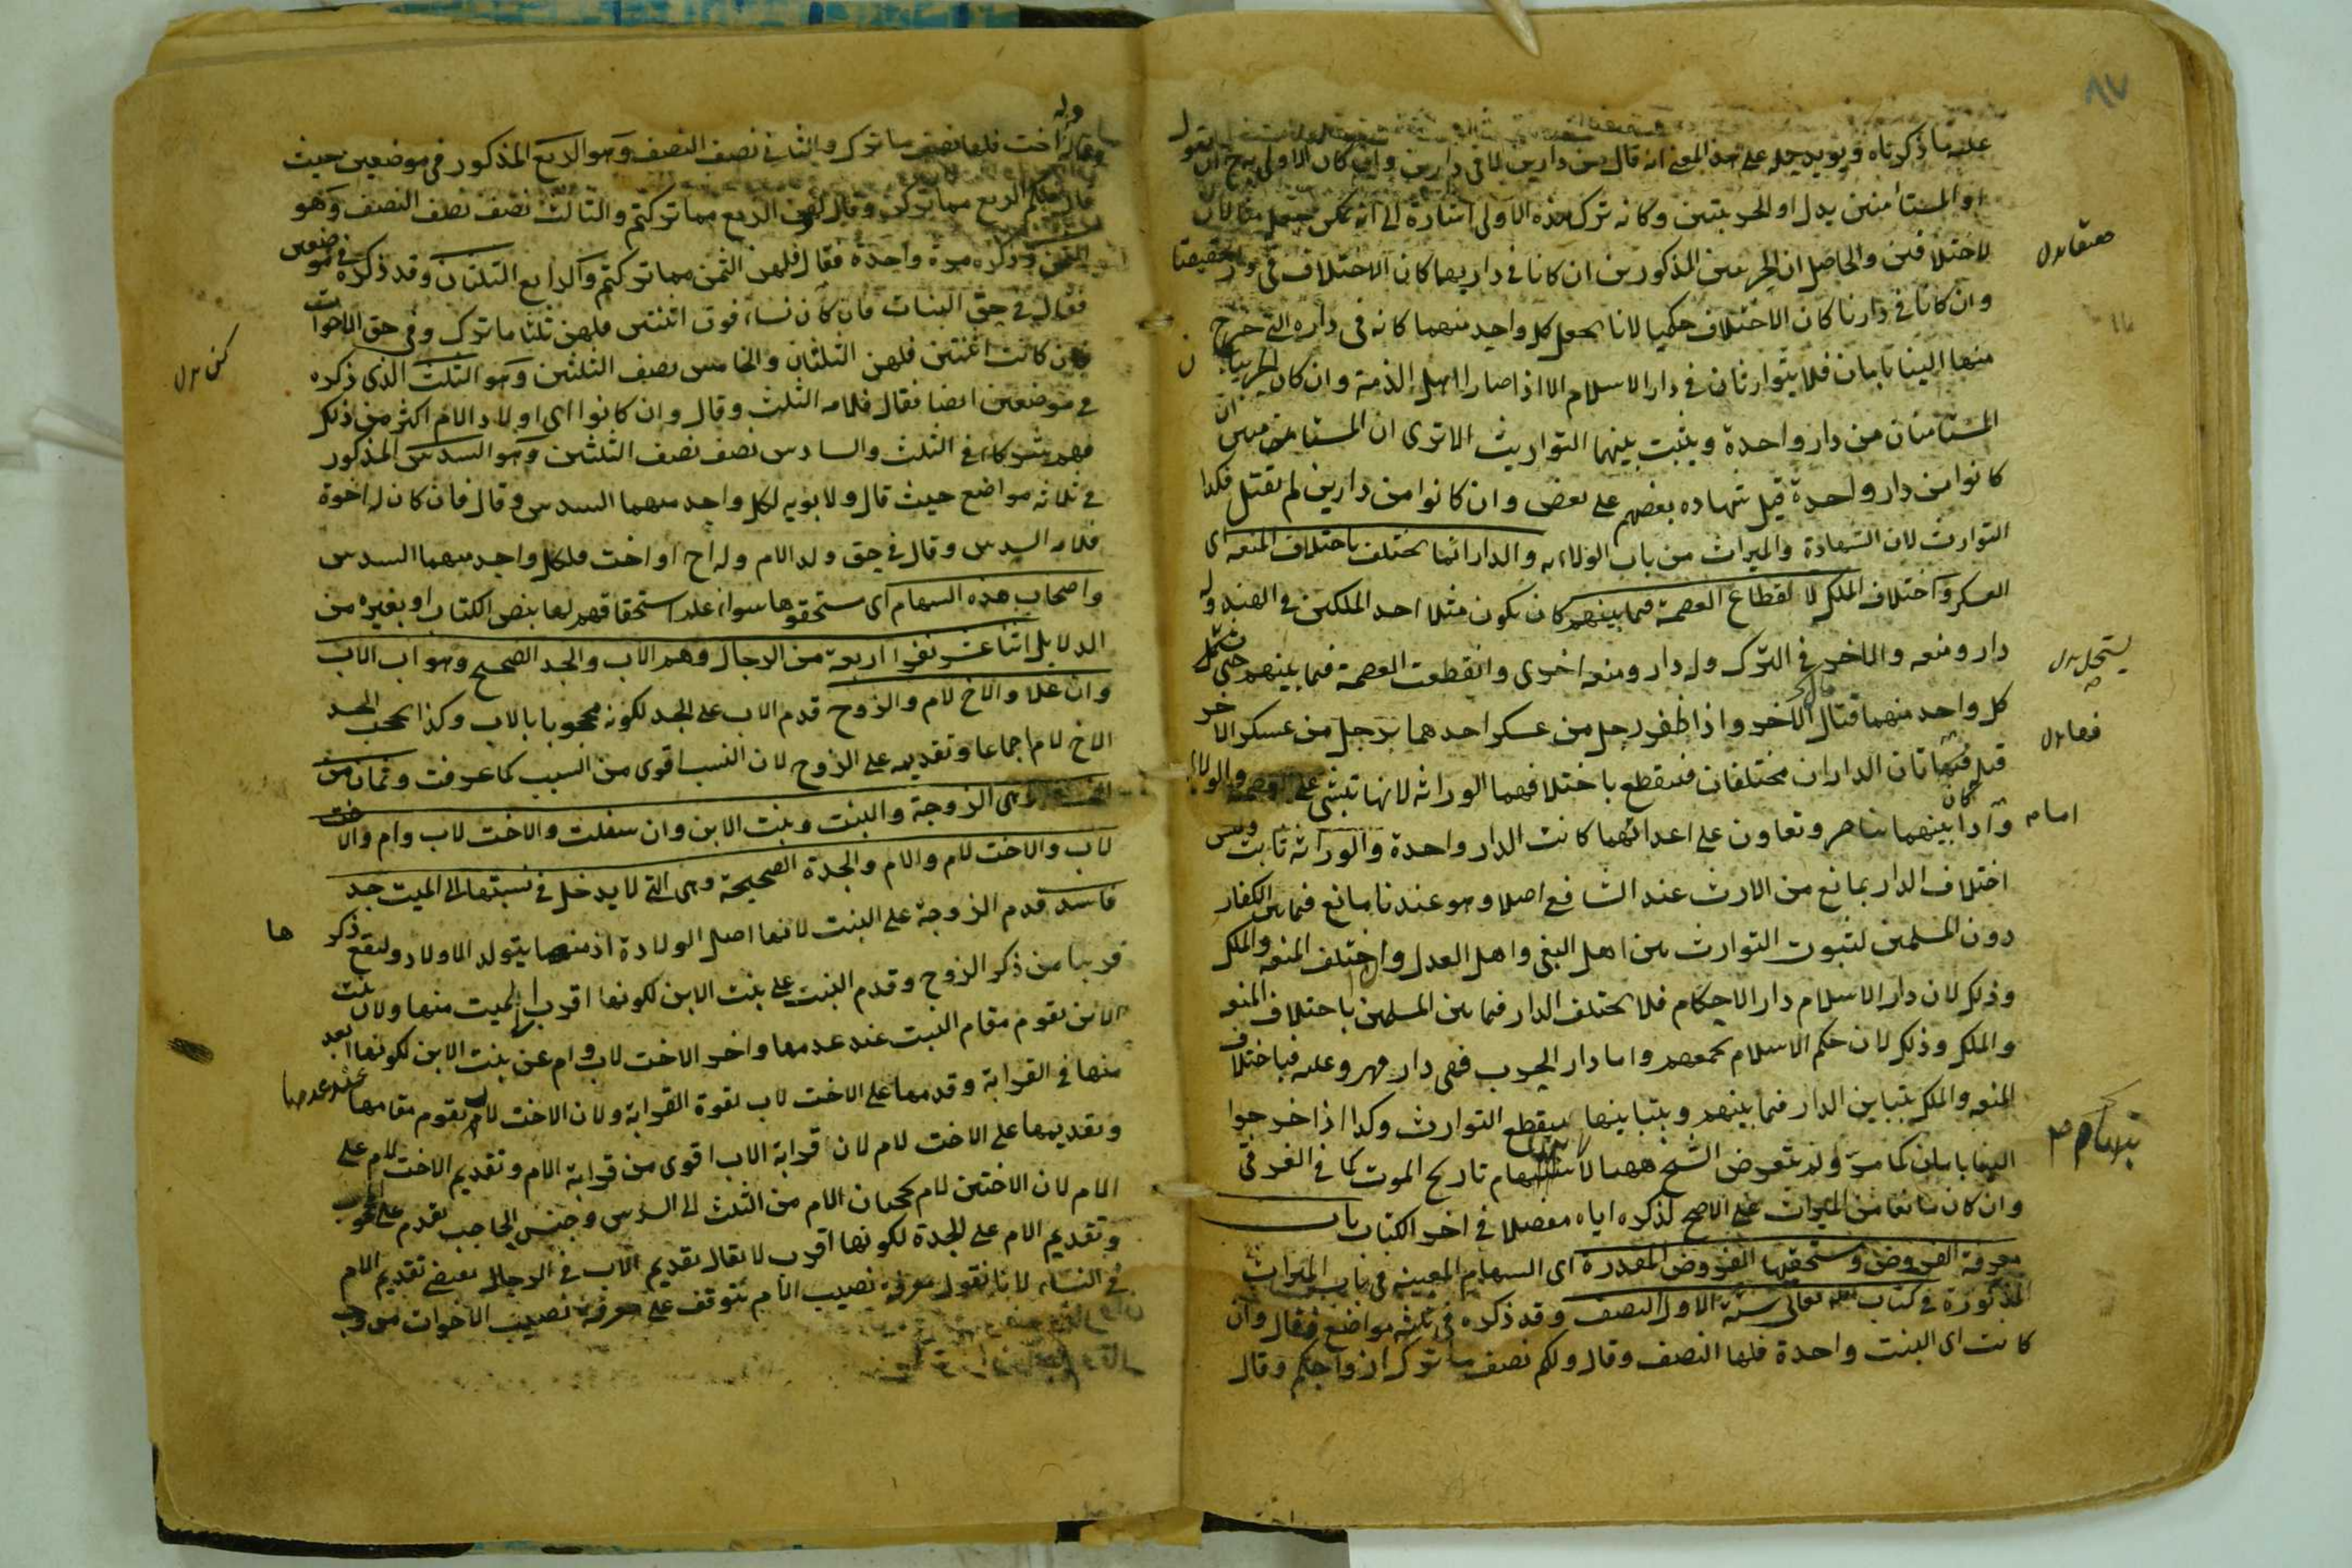 ٨٧
عليه ما ذكرناه ويؤيد حمله على هذا المعنى انه قال من دارين لا في دارين وان كان الاولى ح ان يقول
او المستأمنين بدل او الحربيين وكانه ترك هذه الاولى اشارة الى انه يمكن جعل مثالا
لاختلافين والحاصل ان الحربيين المذكورين ان كانا في داريهما كان الاختلاف في حقيقيا
وان كانا في دارنا كان الاختلاف حكميا لانا نجعل كل واحد منهما كانه في داره التي خرج
منها الينا بامان فلا يتوارثان في دار الاسلام الا اذا صارا اهل الذمة وان كان الحربيان
المستأمنان من دار واحدة ويثبت بينهما التوارث الا ترى ان المستأمنين ان
كانوا من دار واحدة قبل شهادة بعضهم على بعض وان كانوا من دارين لم تقبل فكذا
التوارث لان الشهادة والميراث من باب الولاية والدار انما تختلف باختلاف المنعة اى
العسكر واختلاف الملك لانقطاع العصمة فيما بينهم كان يكون مثلا احد الملكين في الهند وله
دار ومنعه والاخر في الترك وله دار ومنعه اخرى وانقطعت العصمة فيما بينهم حتى يستحل
كل واحد منهما قتال الاخر واذا ظفر رجل من عسكر احدهما برجل من عسكر الاخر
قتله فهاتان الداران مختلفتان فتنقطع باختلافهما الوراثه لانها تبتنى على العصمة والولاء
واذا كان بينهما تناصر وتعاون على اعدائهما كانت الدار واحدة والوراثه ثابت وليس
اختلاف الدار بمانع من الارث عند الشافعى اصلا وهو عندنا مانع فيما بين الكفار
دون المسلمين لثبوت التوارث بين اهل البغى واهل العدل وان اختلف المنعه والملك
وذلك لان دار الاسلام دار الاحكام فلا تختلف الدار فيما بين المسلمين باختلاف المنعه
والملك وذلك لان حكم الاسلام يجمعهم واما دار الحرب فهى دار قهر وغلبه فباختلاف
المنعه والملك يتباين الدار فيما بينهم وبتباينها ينقطع التوارث وكذا اذا خرجوا
الينا بامان كما مر ولم يتعرض الشيخ ههنا لاستبهام تاريخ الموت كما في الغرقى
وان كان مانعا من الميراث على الاصح لذكره اياه مفصلا في اخر الكتاب باب
معرفة الفروض ومستحقيها الفروض المقدرة اى السهام المعينه في باب الميراث
المذكورة في كتاب الله تعالى ستة الاول النصف وقد ذكره في ثلثه مواضع فقال وان
كانت اى البنت واحدة فلها النصف وقال ولكم نصف ما ترك ازواجكم وقال
يستحل بدل
امام
وله اخت فلها نصف ما ترك والثاني نصف النصف وهو الربع المذكور في موضعين حيث
قال فلكم الربع مما تركن وقال ولهن الربع مما تركتم والثالث نصف نصف النصف وهو
الثمن وذكره مرة واحدة فقال فلهن الثمن مما تركتم والرابع الثلثان وقد ذكره في موضعين
فقال في حق البنات فان كان نساء فوق اثنتين فلهن ثلثا ما ترك وفي حق الاخوات
فان كانت اثنتين فلهن الثلثان والخامس نصف الثلثين وهو الثلث الذي ذكره
في موضعين ايضا فقال فلامه الثلث وقال وان كانوا اى اولاد الام اكثر من ذلك
فهم شركاء في الثلث والسادس نصف نصف الثلثين وهو السدس المذكور
في ثلاثه مواضع حيث قال ولابويه لكل واحد منهما السدس وقال فان كان له اخوة
فلامه السدس وقال في حق ولد الام وله اخ او اخت فلكل واحد منهما السدس
واصحاب هذه السهام اى مستحقوها سواء علم استحقاقهم لها بنص الكتاب او بغيره من
الدلايل اثنا عشر نفرا اربعة من الرجال وهم الاب والجد الصحيح وهو اب الاب
وان علا والاخ لام والزوج قدم الاب على الجد لكونه محجوبا بالاب وكذا يحجب الجد
الاخ لام اجماعا وتقديمه على الزوج لان النسب اقوى من السبب كما عرفت وثمان من
النساء وهى الزوجة والبنت وبنت الابن وان سفلت والاخت لاب وام والاخت
لاب والاخت لام والام والجدة الصحيحة وهى التي لا يدخل في نسبتها الى الميت جد
فاسد قدم الزوجة على البنت لانها اصل الولادة اذ منها يتولد الاولاد وليقع ذكر ها
قريبا من ذكر الزوج وقدم البنت على بنت الابن لكونها اقرب الى الميت منها ولان بنت
الابن تقوم مقام البنت عند عدمها واخر الاخت لاب وام عن بنت الابن لكونها ابعد
منها في القرابة وقدمها على الاخت لاب لقوة القرابة ولان الاخت لاب تقوم مقامها عند عدمها
وتقديمها على الاخت لام لان قرابة الاب اقوى من قرابة الام وتقديم الاخت لام على
الام لان الاختين لام تحجبان الام من الثلث الى السدس وجنس الحاجب تقدم على المحجوب
وتقديم الام على الجدة لكونها اقرب لا يقال تقديم الاب في الرجال يقتضى تقديم الام
في النساء لانا نقول معرفة نصيب الام تتوقف على معرفة نصيب الاخوات من وجه